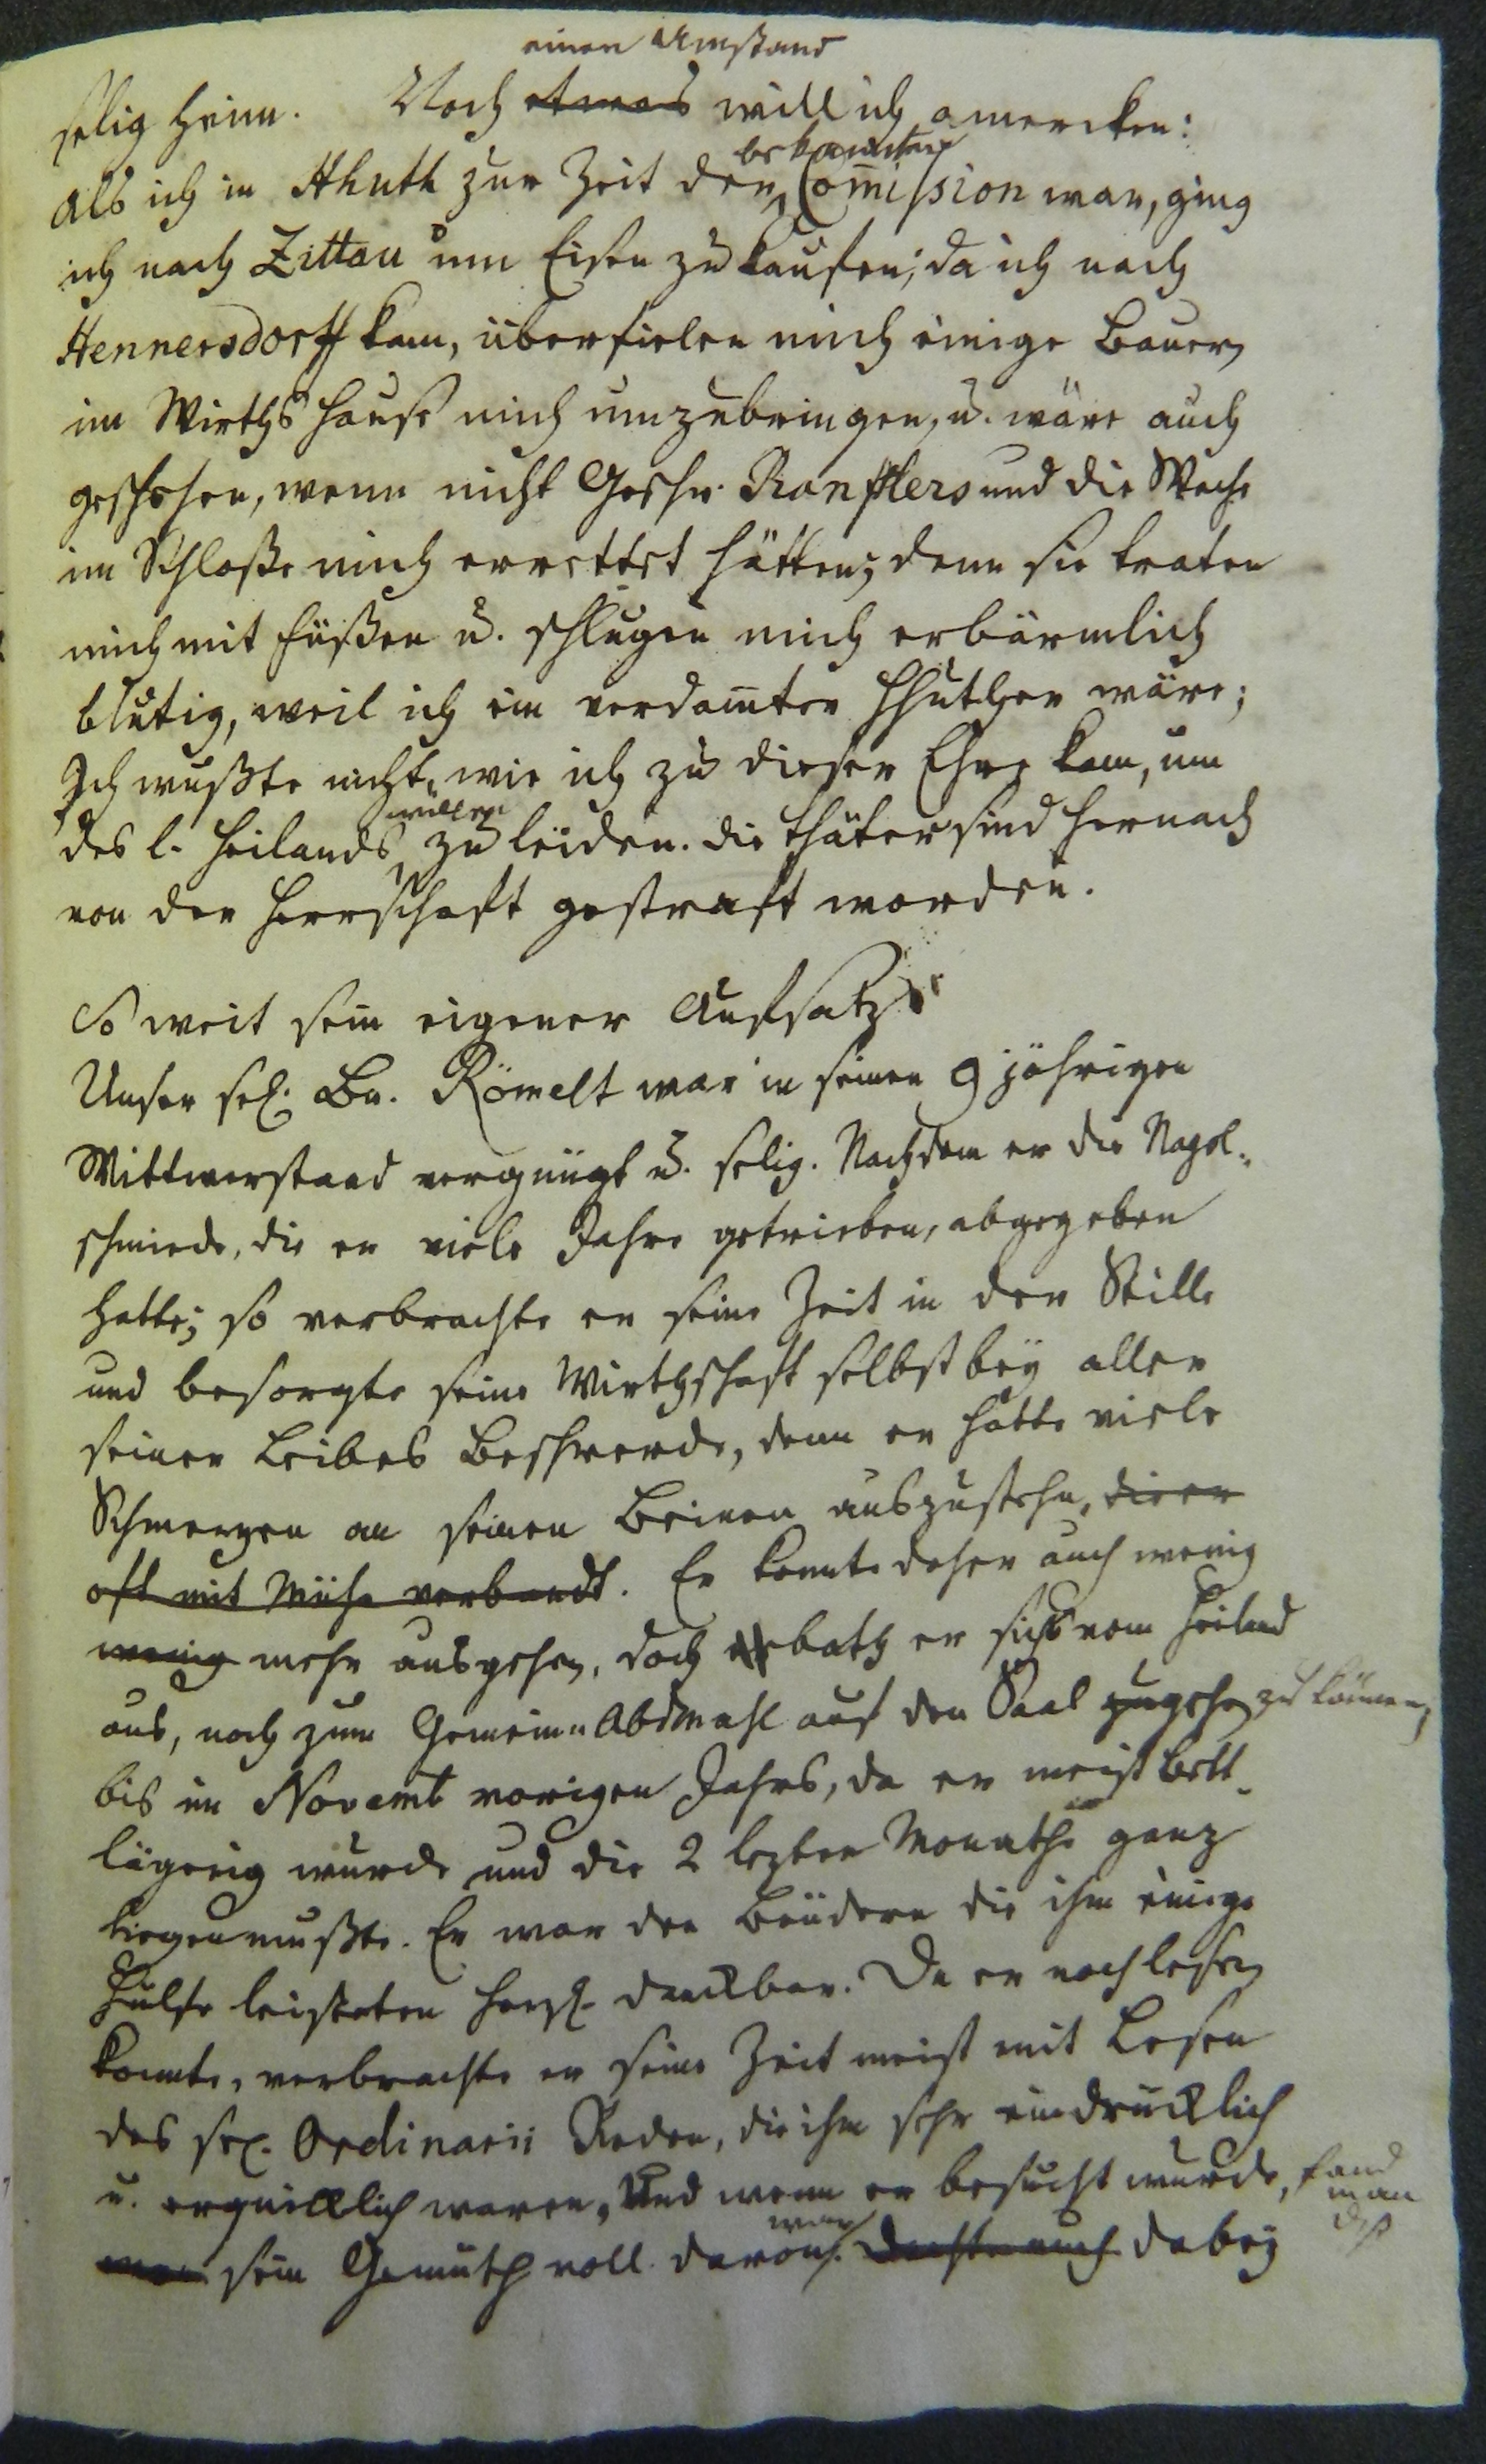 einen Umstand
selig heim. Noch etwas will ich anmercken:
bekannten
Als ich in Hhuth zur Zeit der Com̅ission war, ging
ich nach Zittau um Eisen zu kaufen; da ich nach
Hennersdorff kam, überfielen mich einige Bauern
im Wirthshause mich umzubringen, u. wäre auch
geschehen, wenn nicht Geschw. Ranfftlers und die Wache
im Schloße mich errettet hätten; denn sie traten
mich mit Füßen u. schlugen mich erbärmlich
blutig, weil ich ein verdam̅ter Hhuther wäre;
Ich wußte nicht, wie ich zu dieser Ehre kam, um
willen
des l. Heilands zu leiden. die Thäter sind hernach
von der Herrschaft gestraft worden.
So weit sein eigener Aufsatz.
Unser sel. Br. Römelt war in seinem 9 jährigen
Wittwerstand vergnügt u. selig. Nachdem er die Nagel-
schmiede, die er viele Jahre getrieben, abgegeben
hatte; so verbrachte er seine Zeit in der Stille
und besorgte seine Wirthschaft selbst bey aller
seiner Leibes Beschwerde, denn er hatte viele
Schmerzen an seinen Beinen auszustehn, die er
oft mit Mühe verbandt. Er konnte daher auch wenig
wenig mehr ausgehen, doch bath er sichs vom Heiland
aus, noch zum Gemein-Abdmahl auf den Saal zu gehen zu können,
bis im Novemb vorigen Jahrs, da er meist bett-
lägerig wurde und die 2 lezten Monathe ganz
liegen mußte. Er war den Brüdern die ihm einige
Hülfe leisteten herzl. danckbar. Da er noch lesen
konnte, verbrachte er seine Zeit meist mit Lesen
des sel. Ordinarii Reden, die ihm sehr eindrücklich
u. erquicklich waren, Und wenn er besucht wurde, fand
man
dß
war
man sein Gemüth voll davon. dabey